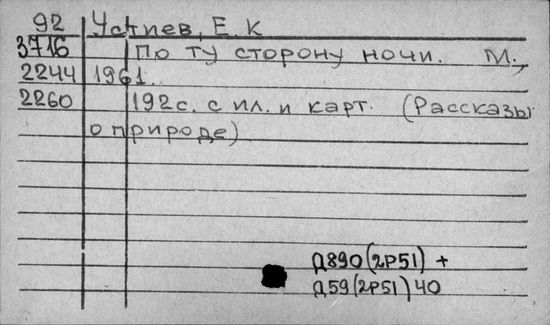 92 Устиев, Е. К
3716 По ту сторону ночи. М.,
2244 1961.
2260 192с. с ил. и карт. (Рассказы
о природе)
Д890(2Р51) +
Д59(2Р51) 40